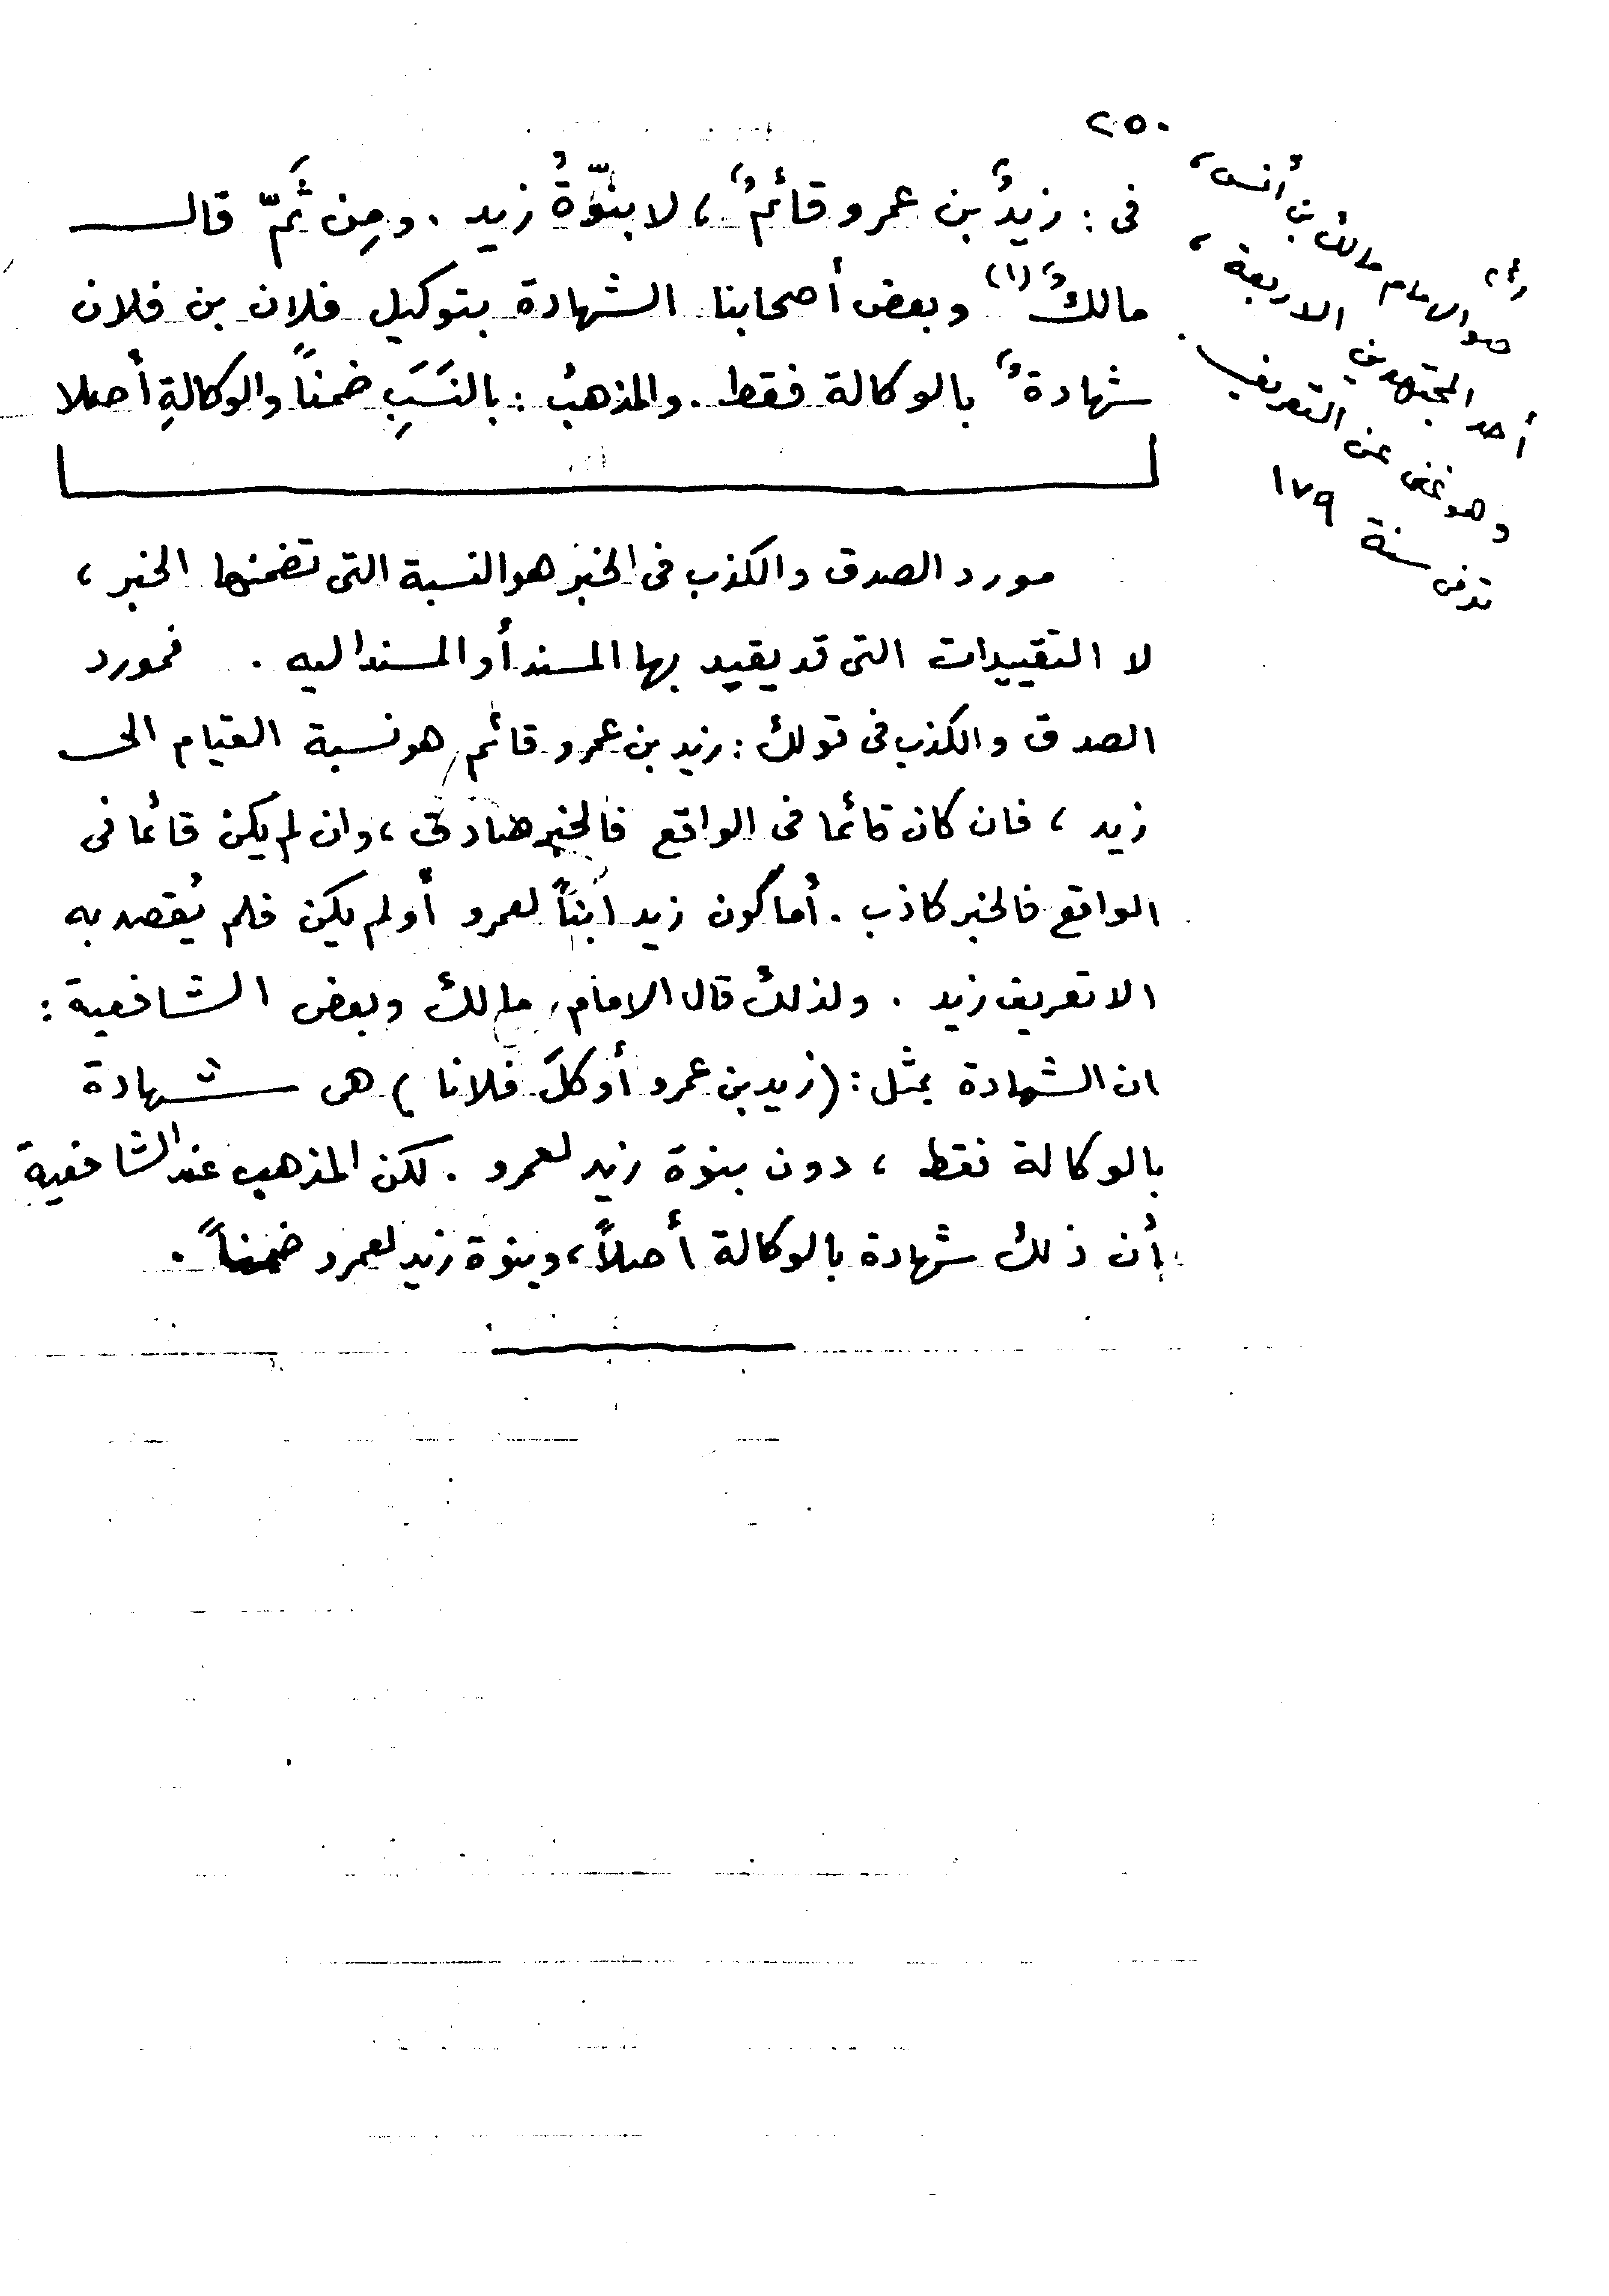 ٢٥٠
فى : زيدٌ بن عمرو قائمٌ ، لا بنوّةُ زيد . ومِن ثَمّ قال
مالكٌ (١) وبعض أصحابنا الشهادة بتوكيل فلان بن فلان
شهادةٌ بالوكالة فقط . والمذهبُ : بالنَسَبِ ضمناً والوكالةِ أصلا
مورد الصدق والكذب فى الخبر هو النسبة التى تضمنها الخبر ،
لا التقييدات التى قد يقيد بها المسند أو المسند اليه . فمورد
الصدق والكذب فى قولك : زيد بن عمرو قائم هو نسبة القيام الى
زيد ، فان كان قائما فى الواقع فالخبر صادق ، وان لم يكن قائما فى
الواقع فالخبر كاذب . أما كون زيد ابناً لعمرو أو لم يكن فلم يُقصد به
الا تعريف زيد . ولذلك قال الامام مالك وبعض الشافعية :
ان الشهادة بمثل : ( زيد بن عمرو أوكلَ فلانا ) هى شهادة
بالوكالة فقط ، دون بنوة زيد لعمرو . لكن المذهب عند الشافعية
أن ذلك شهادة بالوكالة أصلاً ، وبنوة زيد لعمرو ضمناً .
(١)
هو الامام مالك بن أنس ،
أحد المجتهدين الاربعة ،
وهو غنى عن التعريف .
توفى سنة ١٧٩